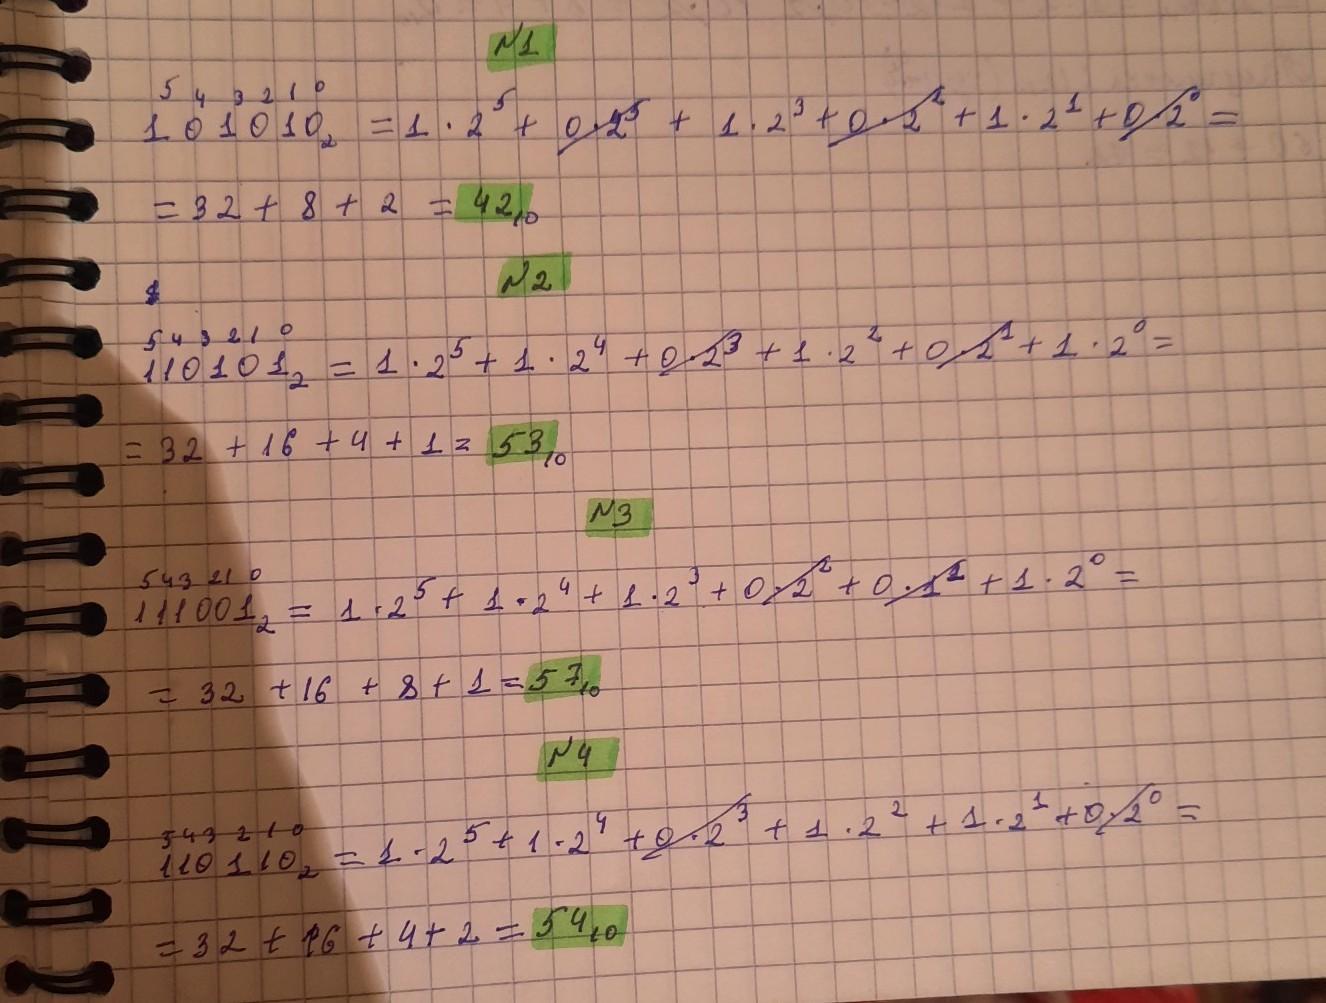 №1
5 4 3 2 1 0
101010₂ = 1 · 2⁵ + 0 · 2⁵ + 1 · 2³ + 0 · 2² + 1 · 2¹ + 0 · 2⁰ =
= 32 + 8 + 2 = 42₁₀
№2
5 4 3 2 1 0
110101₂ = 1 · 2⁵ + 1 · 2⁴ + 0 · 2³ + 1 · 2² + 0 · 2¹ + 1 · 2⁰ =
= 32 + 16 + 4 + 1 = 53₁₀
№3
5 4 3 2 1 0
111001₂ = 1 · 2⁵ + 1 · 2⁴ + 1 · 2³ + 0 · 2² + 0 · 1¹ + 1 · 2⁰ =
= 32 + 16 + 8 + 1 = 57₁₀
№4
5 4 3 2 1 0
110110₂ = 1 · 2⁵ + 1 · 2⁴ + 0 · 2³ + 1 · 2² + 1 · 2¹ + 0 · 2⁰ =
= 32 + 16 + 4 + 2 = 54₁₀